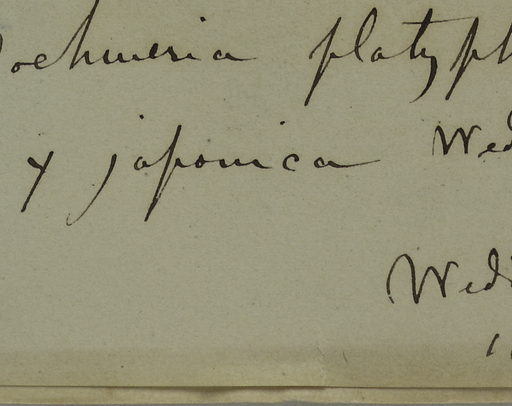 Boehmeria platyph
γ japonica Wed
Wedd
1